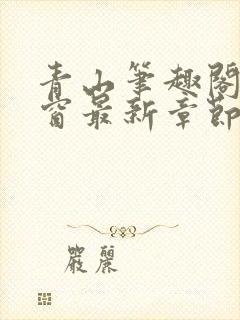 青山筆趣閣
窗最新章節
嚴麗